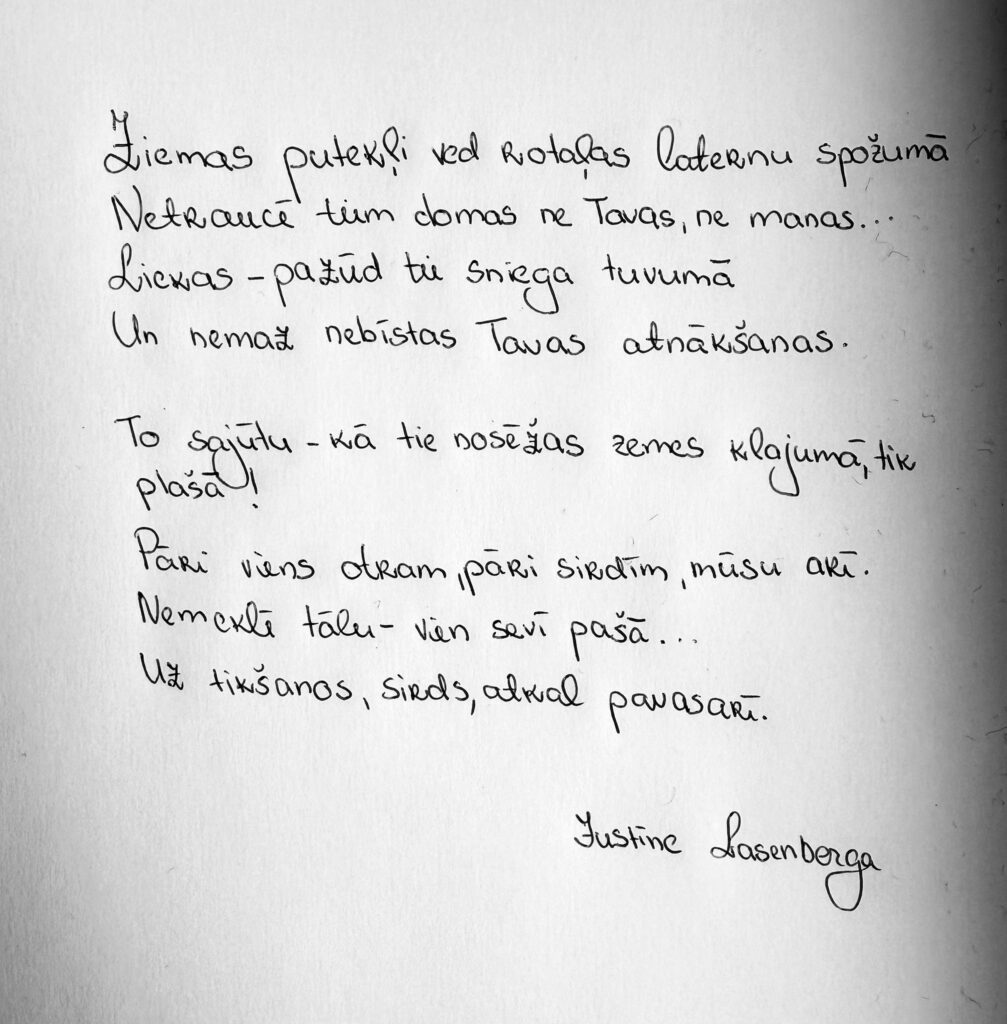 Ziemas putekļi ved rotaļas laternu spožumā
Netraucē tiem domas ne Tavas, ne manas...
Liekas - pazūd tie sniega tuvumā
Un nemaz nebīstas Tavas atnākšanas.
To sajūtu - kā tie nosēžas zemes klajumā, tik
plašā!
Pāri viens otram, pāri sirdīm, mūsu arī.
Nemeklē tālu - vien sevī pašā...
Uz tikšanos, sirds, atkal pavasarī.
Justīne Lasenberga